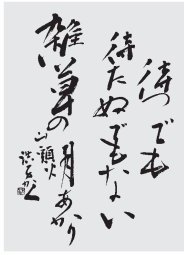 待つでも
待たぬでもない
雑草の月あかり
山頭火